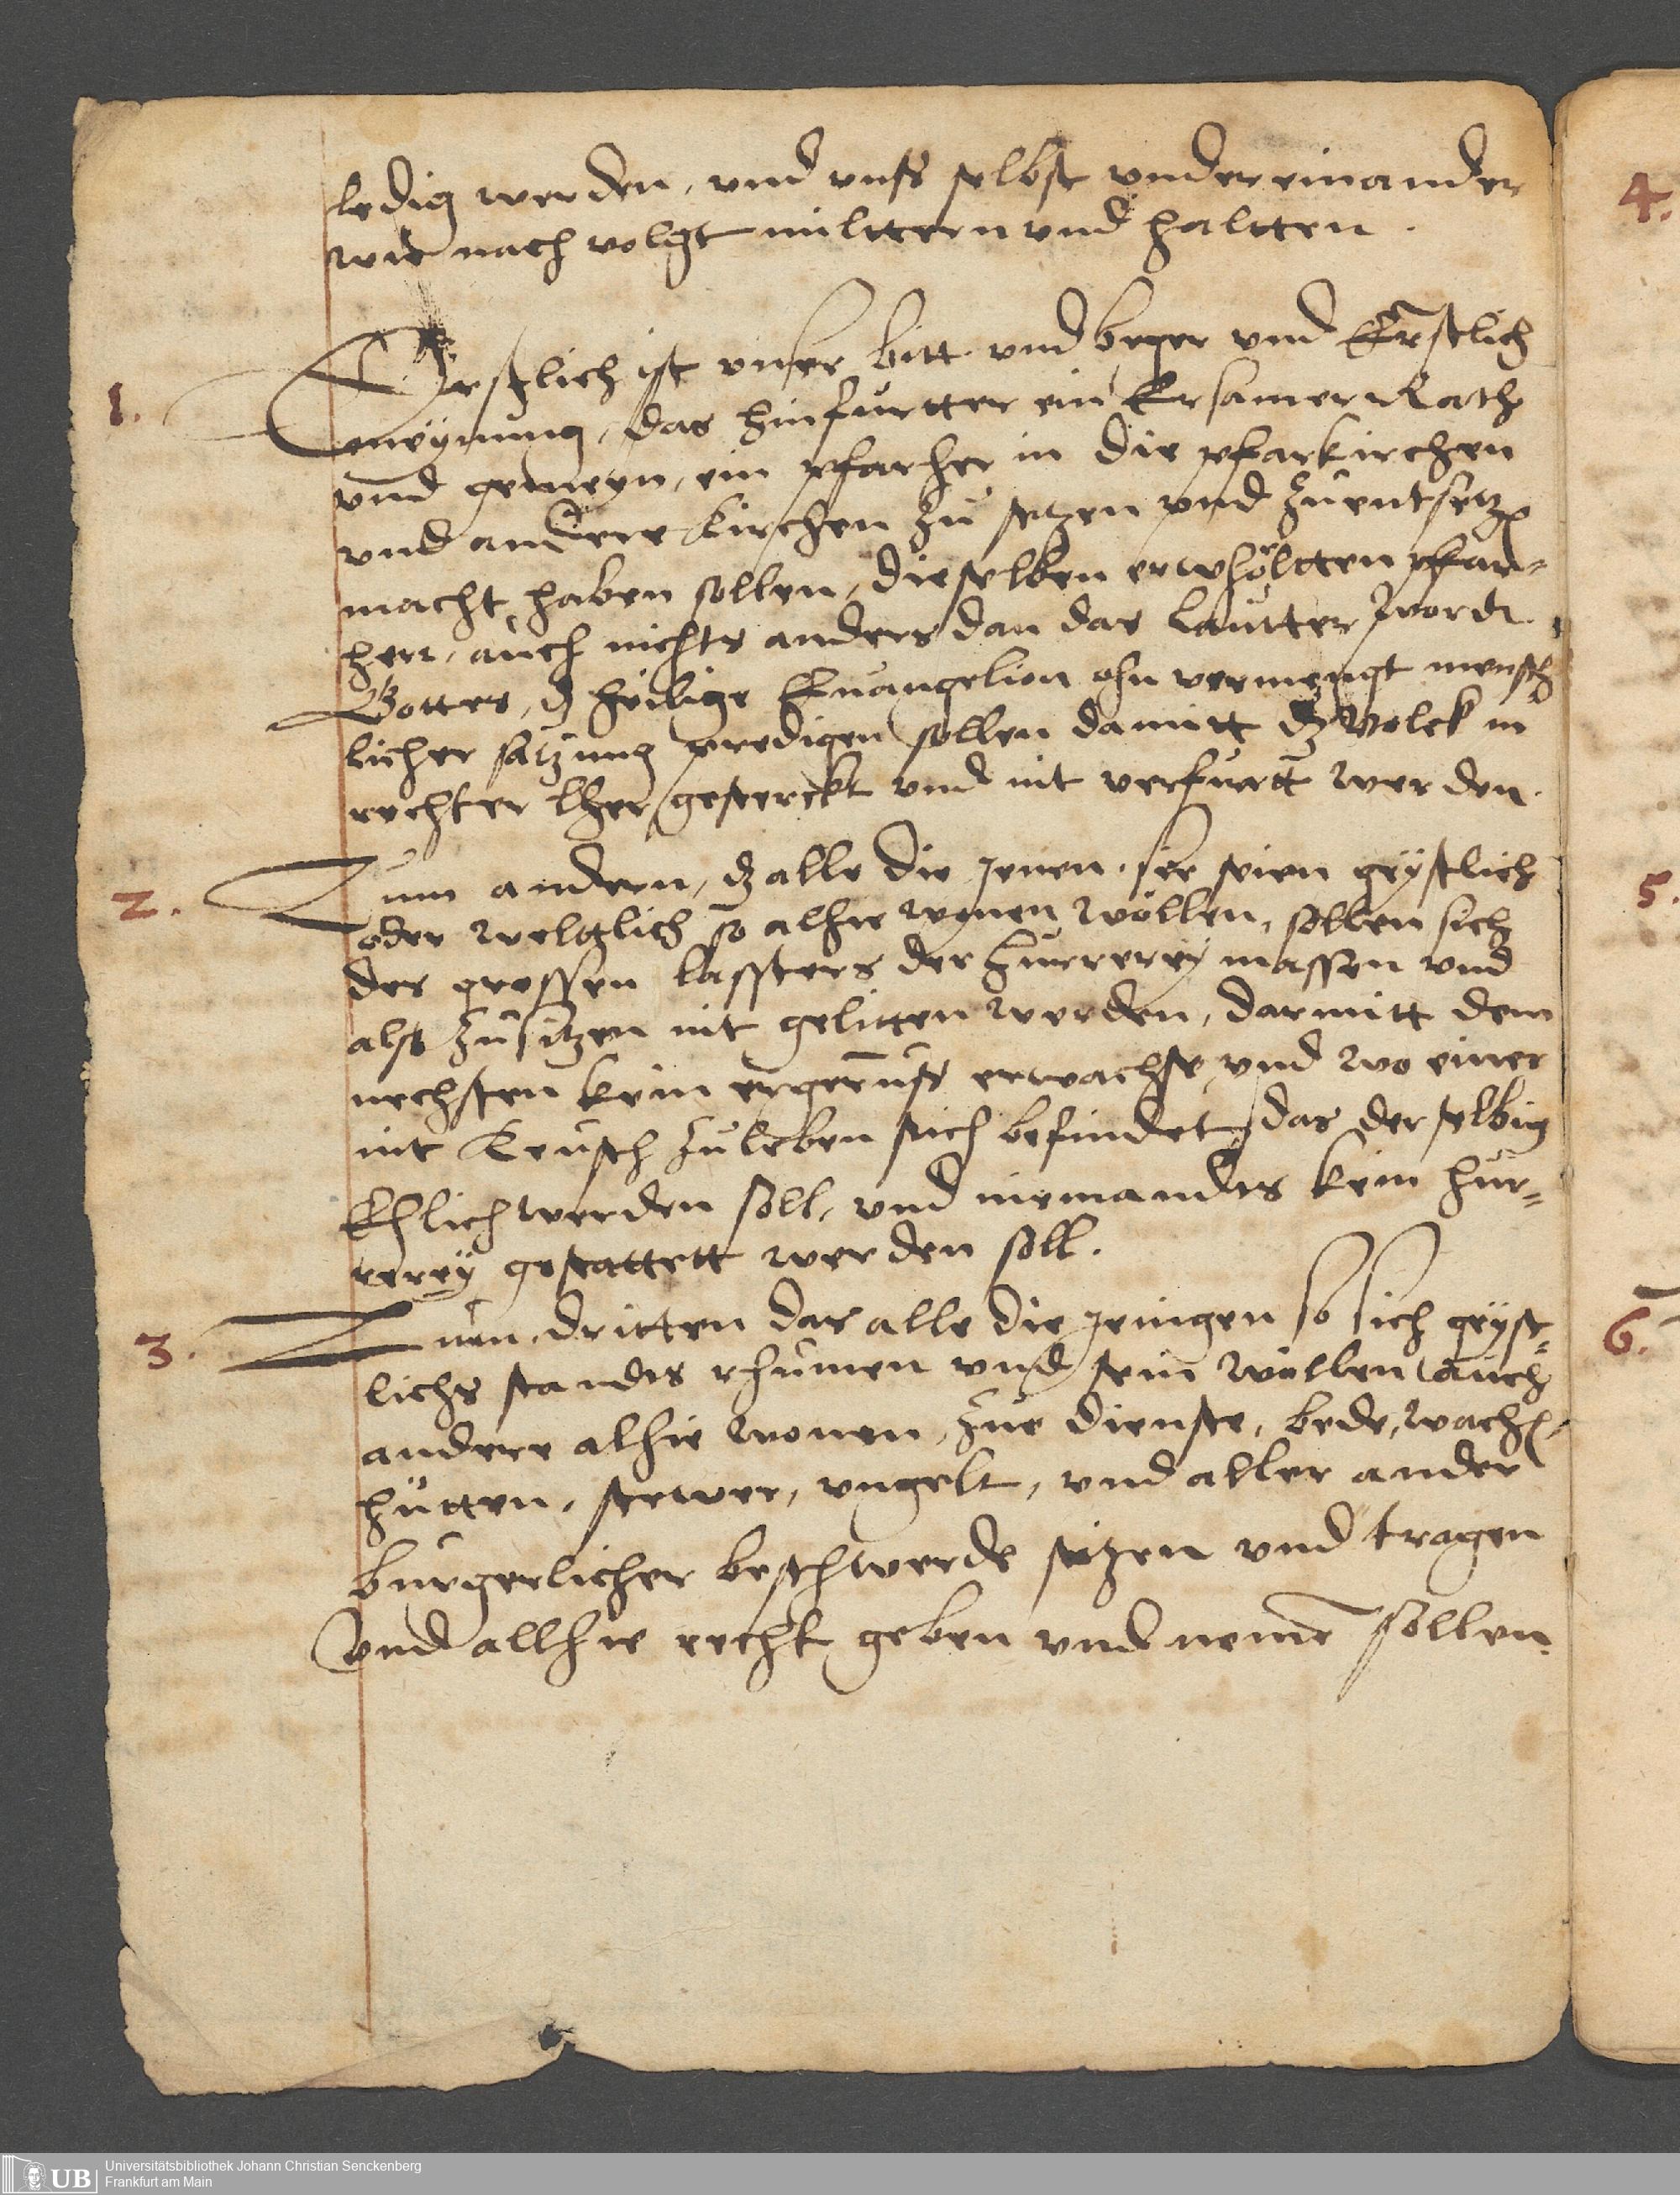 ledig werden, vnd vnss selbst vnder einander
wie nach volgt milttern vnd haltten.
1. Erstlich ist vnser bitt vnd beger vnd Ernstlich
meÿnung, das hinfurtter ein Ersamer Rath
vnd gemeyn, ein pfarher in die pfarkirchen
vnd andere kirchen zu setzen vnd zuentsetzen
macht haben sollen, dieselben erwhöltten pfar-
herr, auch nichts anders dan das lautter wordt
Gottes, dz heilige Euangelion ohn vermengt mensch
licher satzung predigen sollen damitt dz volck in
rechter lher gesterckt vnd nit verfurtt werden.
2. Zum andern, dz alle die jenen sie seien geÿstlich
oder weltlich so alhie wonen wöllen, sollen sich
des grossen lassters der hurrereÿ massen vnd
also zusitzen nit gelitten werden, darmitt dem
nechsten kein ergernuss erwachse, vnd wo einer
nit keusch zuleben sich befindet, das derselbig
Ehlich werden soll, vnd niemandts kein hur-
rereÿ gestattett werden soll.
3. Zum dritten das alle die jenigen so sich geÿst-
lichs standts rhumen vnd sein wöllen auch
andere alhie wonen, zue dienste, bede, wachen,
hutten, stewer, vngelt, vnd aller ander
burgerlicher beschwerde sitzen vnd tragen
vnd allhie recht geben vnd nemen sollen.
4.
5.
6.
UB Universitätsbibliothek Johann Christian Senckenberg
Frankfurt am Main